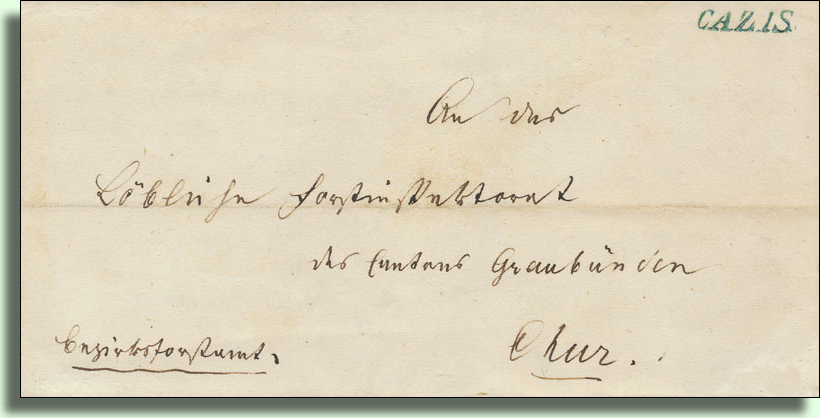 CAZIS.
An das
Löbliche Forstinspektorat
des Cantons Graubünden
Chur.
Bezirksforstamt.